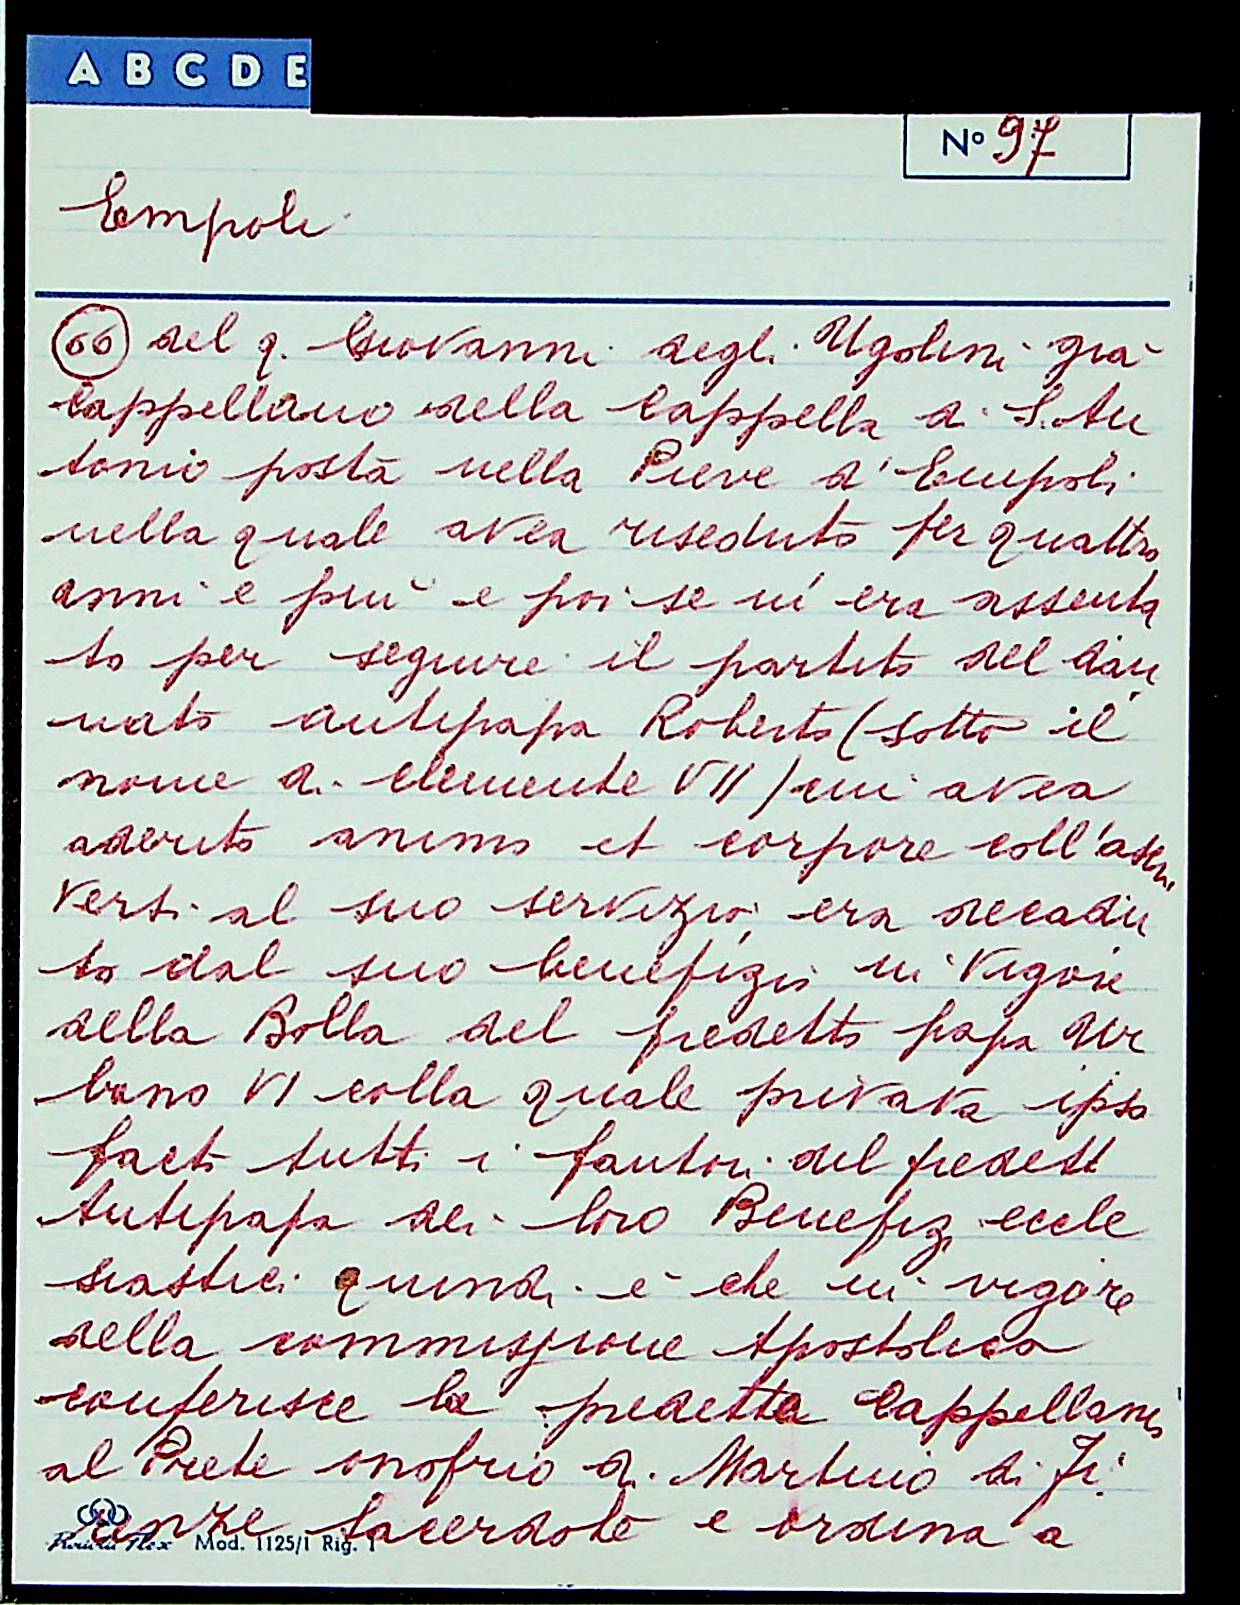 A B C D E
N° 97
Empoli
66 del q. Giovanni degli Ugolini già
Cappellano della Cappella di S. An
tonio posta nella Pieve d'Empoli
nella quale avea riseduto per quattro
anni e più e poi se n'era assenta
to per seguire il partito del dan
nato antipapa Roberto (sotto il
nome di Clemente VII) cui avea
aderito animo et corpore coll'ascri
versi al suo servizio, era decadu
to dal suo benefizio in vigore
della Bolla del predetto papa Ur
bano VI colla quale privava ipso
facto tutti i fautori del predett
Antipapa dei loro Benefizi eccle
siastici quindi è che in vigore
della commissione Apostolica
conferisce la predetta Cappellania
al Prete Onofrio di Martino di Fi
renze Sacerdote e ordina a
Mod. 1125/1 Rig. 1